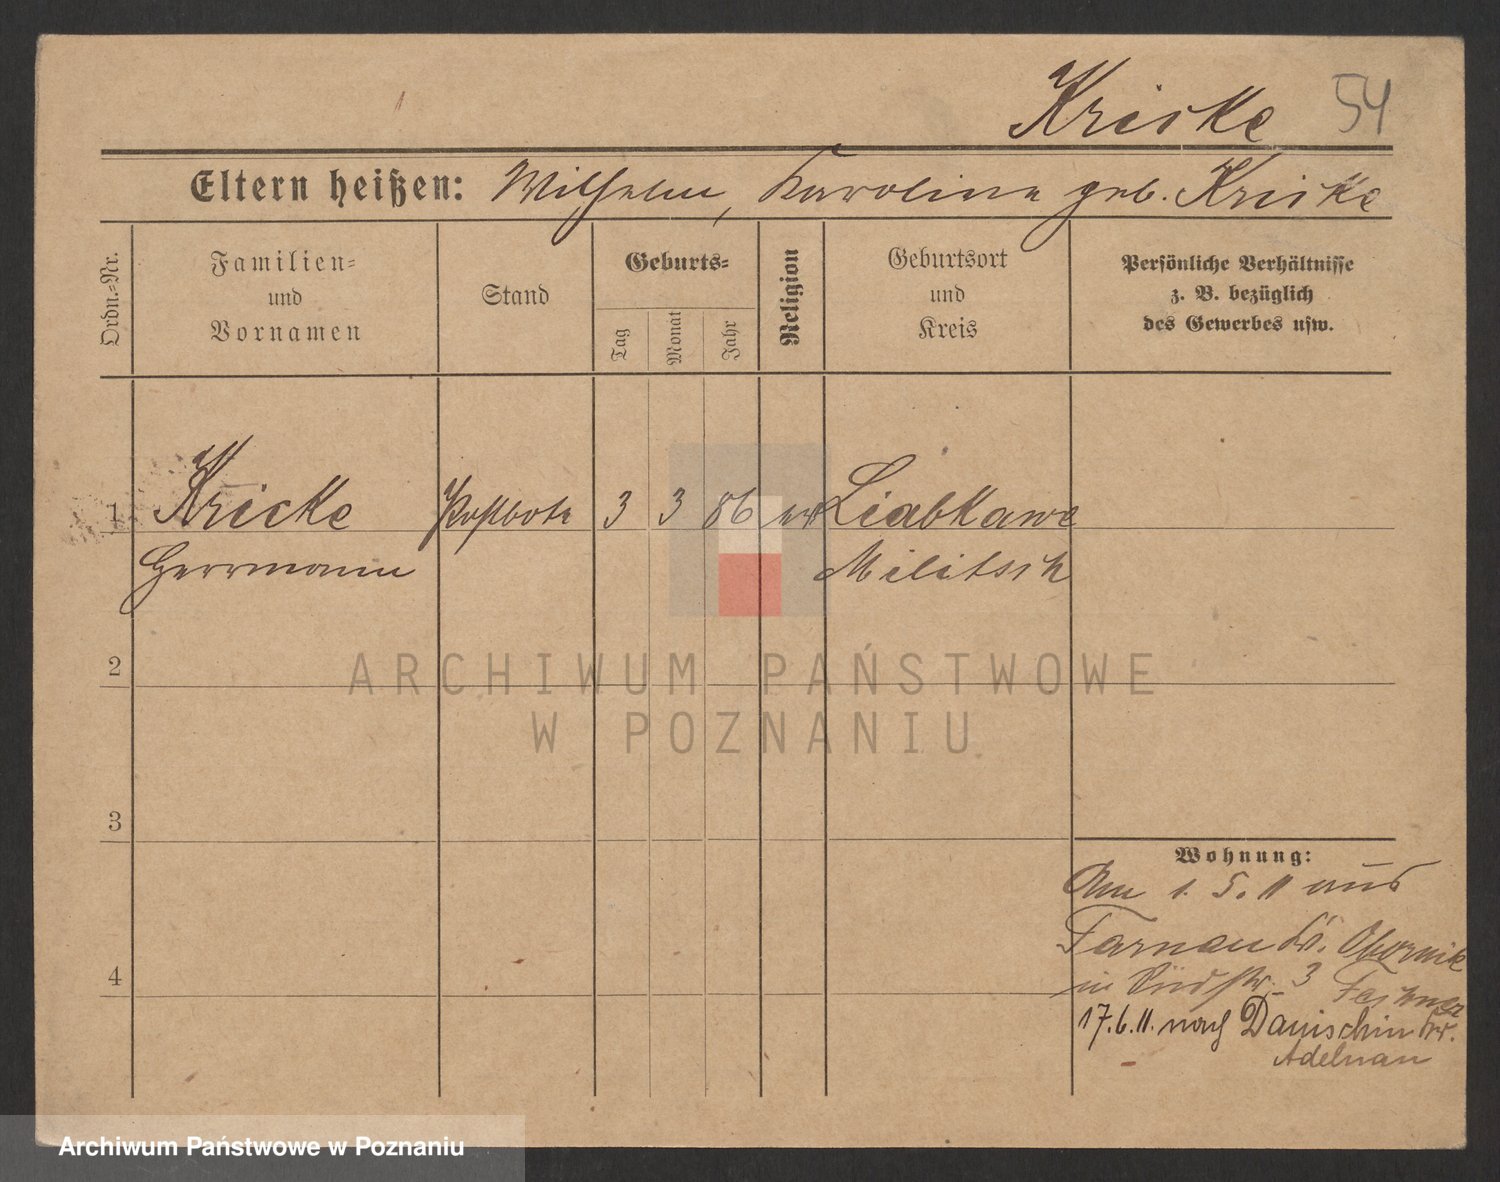 Kricke 54
Eltern heißen: Wilhelm, Karoline geb. Kricke
Ordn.=Nr.
Familien=
und
Vornamen
Stand
Geburts=
Tag
Monat
Jahr
Religion
Geburtsort
und
Kreis
Persönliche Verhältnisse
z. B. bezüglich
des Gewerbes usw.
1 Kricke Postbote 3 3 86 ev Liabkawe
Herrmann Militsch
2
3
4
Wohnung:
Am 1. 5. 11 aus
Tarnau Kr. Obornik
in Südstr. 3
17.6.11. nach Danischin Kr.
Adelnau
ARCHIWUM PAŃSTWOWE
W POZNANIU
Archiwum Państwowe w Poznaniu